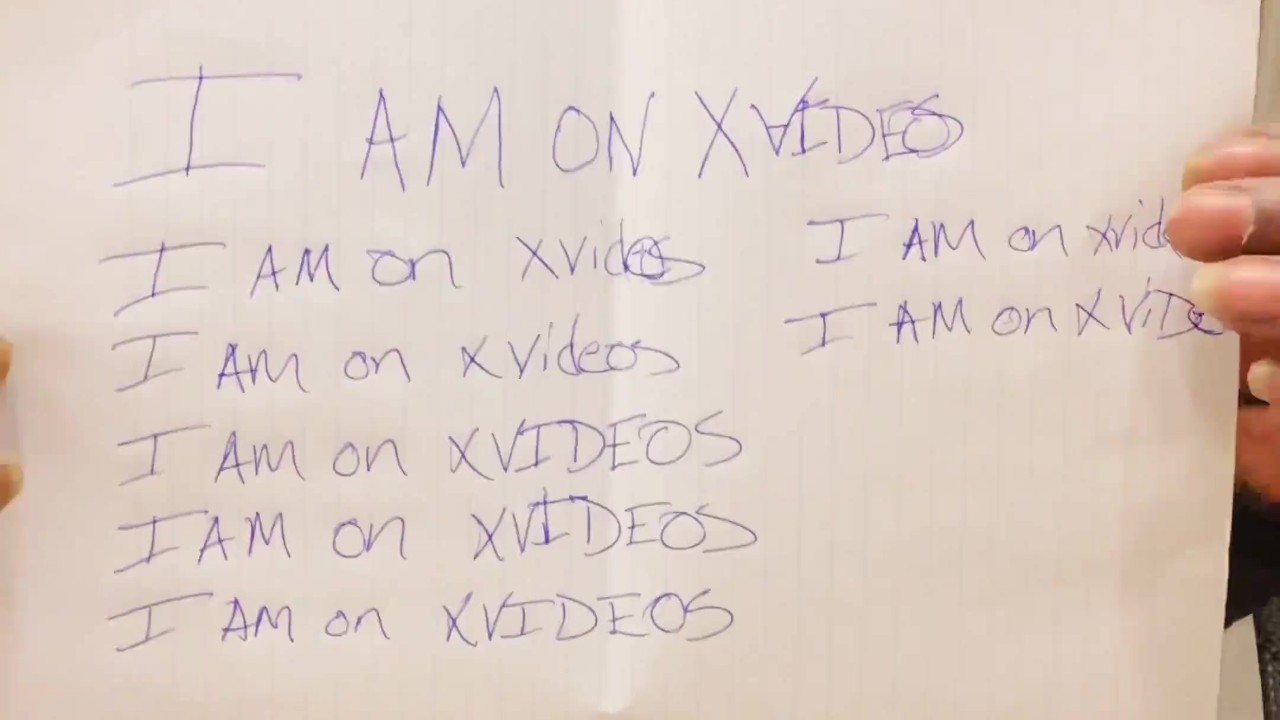 I AM ON XVIDEOS
I AM on xvideos
I AM on xvideos
I AM on XVIDEOS
I AM on XVIDEOS
I AM on XVIDEOS
I AM on xvid
I AM on XViDe